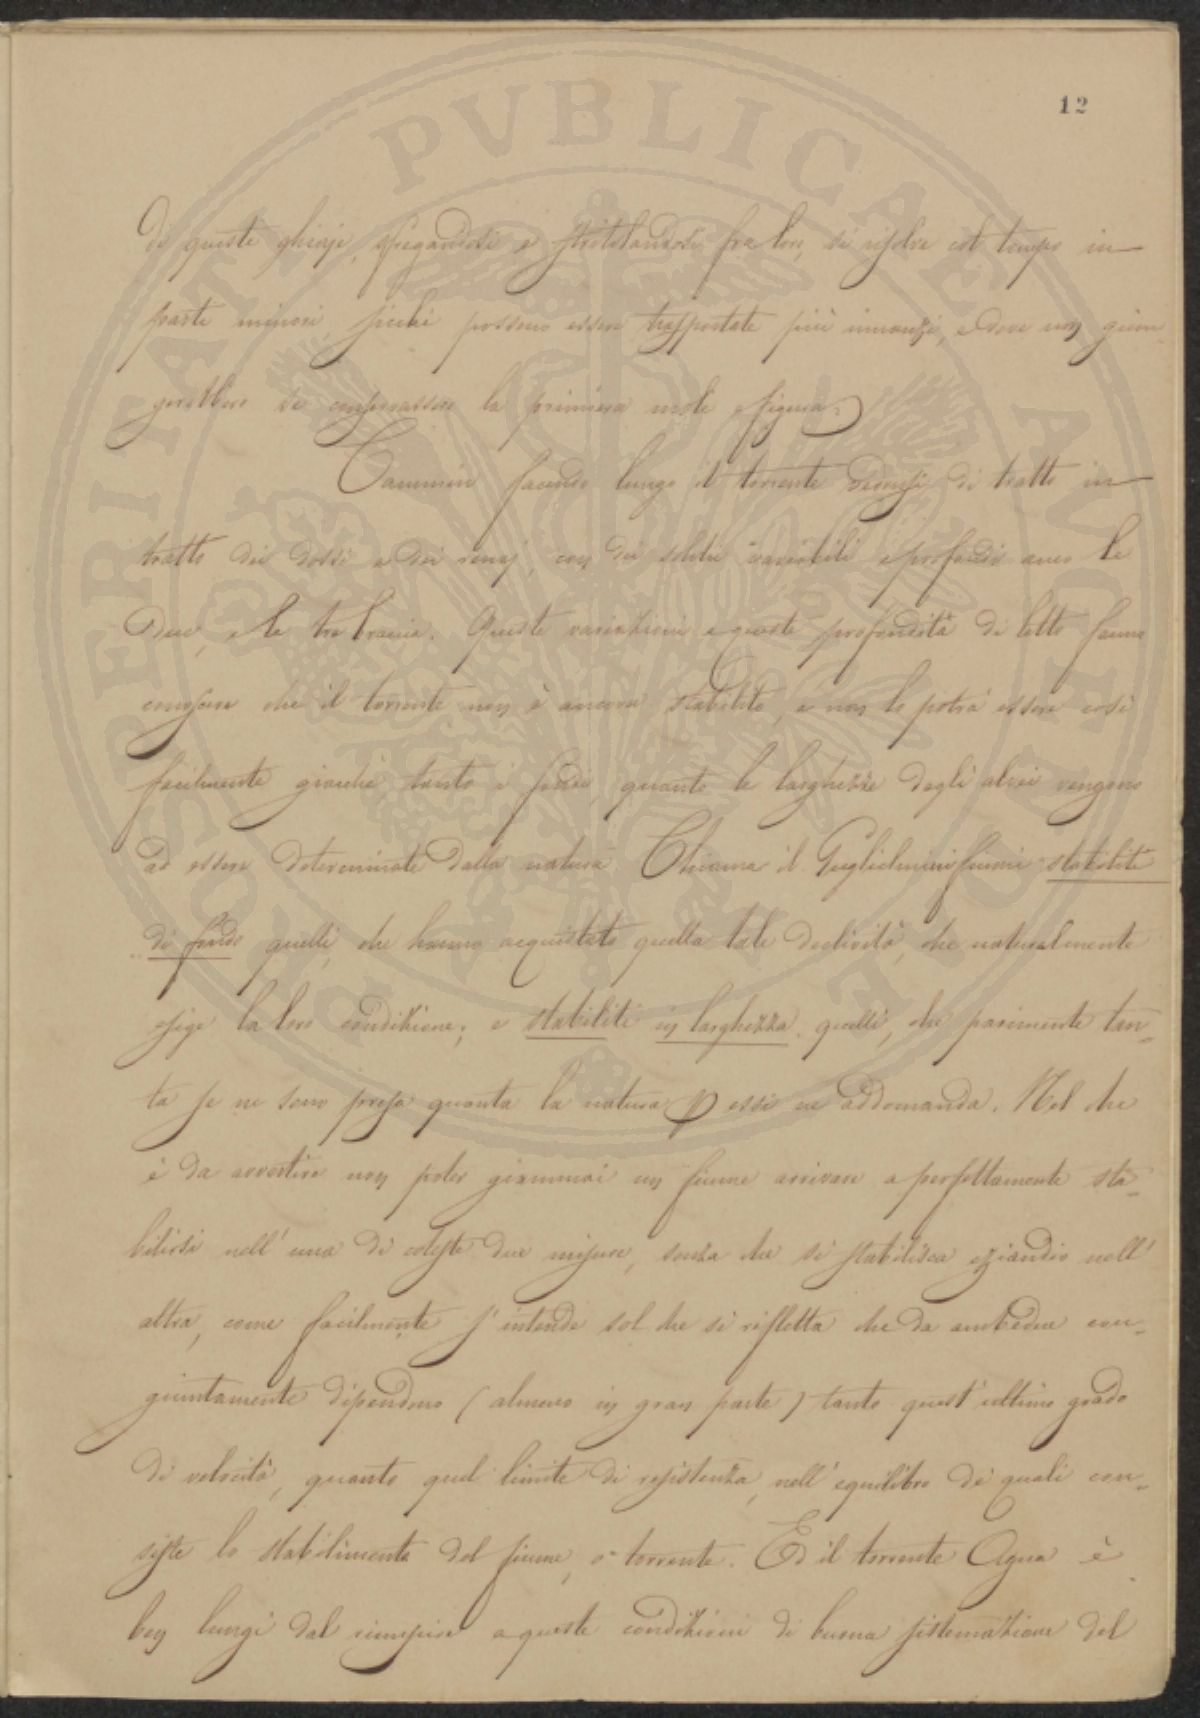 12
di queste ghiaje, sfregandosi e stritolandosi fra loro, si risolve col tempo in
parte minori sicchè possono essere trasportate più innanzi, e dove non giun
gerebbero se conservassero la primiera mole e figura.
Cammin facendo lungo il torrente di tratto in
tratto dei dossi e dei renaj, con dei solchi variabili e profondi anco le
due, e le tre braccia. Queste variazioni e queste profondità di letto fanno
conoscere che il torrente non è ancora stabilito, e non lo potrà essere così
facilmente giacchè tanto i fondi, quanto le larghezze degli alvei vengono
ad essere determinate dalla natura. Chiama il Guglielmini fiumi stabiliti
di fondo quelli, che hanno acquistato quella tale declività, che naturalmente
esige la loro condizione; e stabiliti in larghezza quelli, che parimente tan-
ta se ne sono presa quanta la natura p essi ne addomanda. Nel che
è da avvertire non poter giammai un fiume arrivare a perfettamente sta-
bilirsi nell'una di coteste due misure, senza che si stabilisca eziandio nell'
altra, come facilmente s'intende sol che si rifletta che da ambedue con-
giuntamente dipendono (almeno in gran parte) tanto quest'ultimo grado
di velocità, quanto quel limite di resistenza, nell'equilibro de quali con-
siste lo stabilimento del fiume, o torrente. Ed il torrente Agna è
ben lungi dal riunire a queste condizioni di buona sistemazione del
PROSPERITATI PVBLICAE AVGENDAE